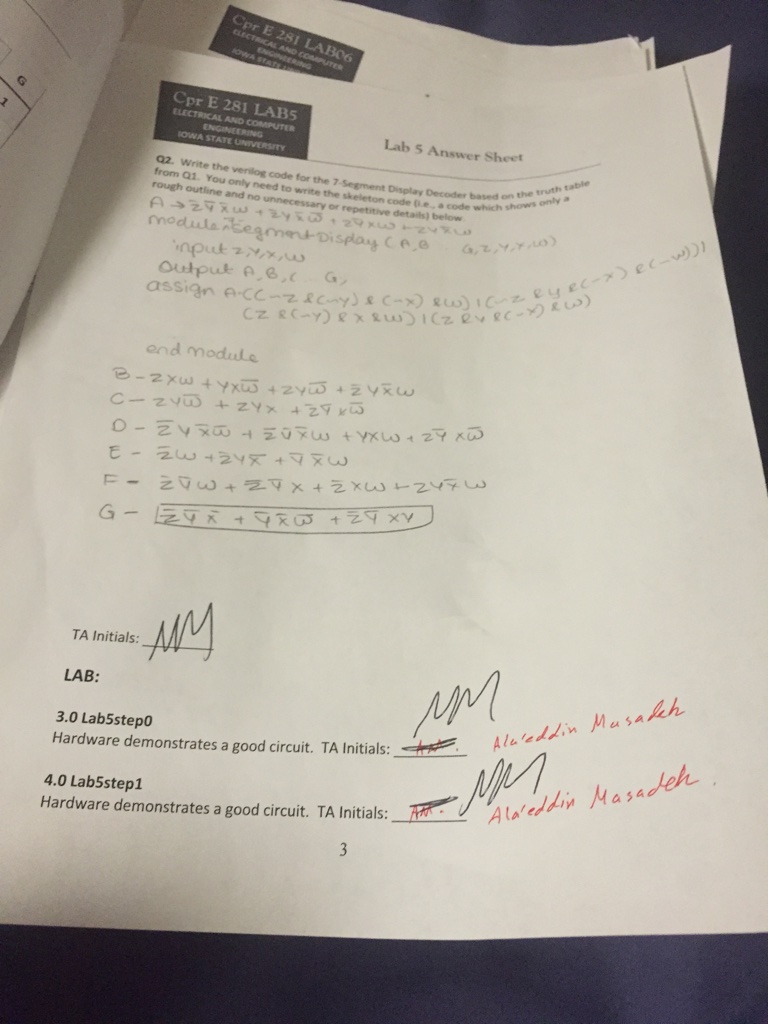 G
1
Cpr E 281 LAB06
ELECTRICAL AND COMPUTER
ENGINEERING
IOWA STATE
Cpr E 281 LAB5
ELECTRICAL AND COMPUTER
ENGINEERING
IOWA STATE UNIVERSITY
Lab 5 Answer Sheet
Q2. Write the verilog code for the 7-Segment Display Decoder based on the truth table
from Q1. You only need to write the skeleton code (i.e., a code which shows only a
rough outline and no unnecessary or repetitive details) below.
A → z̄ȳx̄w + z̄yx̄w̄ + zȳxw + zyx̄w
module 7SegmentDisplay (A,B .. G,z,y,x,w)
input z,y,x,w
output A,B,C .. G,
assign A=((~z&(~y)&(~x)&w)|(~z&y&(~x)&(~w))|
(z&(~y)&x&w)|(z&y&(~x)&w)
end module
B - zxw + yxw̄ + zyw̄ + z̄yx̄w
C - zyw̄ + zyx + z̄ȳxw̄
D - z̄yx̄w̄ + z̄ȳx̄w + yxw + zȳxw̄
E - z̄w + z̄yx̄ + ȳx̄w
F - z̄ȳw + z̄ȳx + z̄xw + zyx̄w
G - z̄ȳx̄ + ȳx̄w̄ + z̄ȳxy
TA Initials:
LAB:
3.0 Lab5step0
Hardware demonstrates a good circuit. TA Initials: AM. Ala'eddin Masadeh
4.0 Lab5step1
Hardware demonstrates a good circuit. TA Initials: AM. Ala'eddin Masadeh.
3